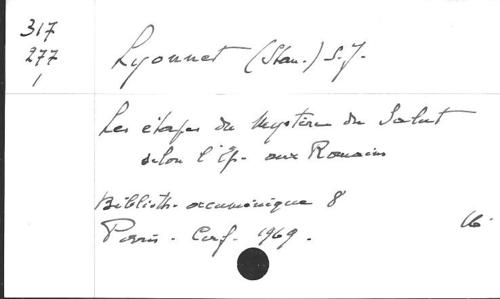 317
277
1
Lyonnet (Stan.) S.J.
Les étapes du Mystère du Salut
selon l'Ép. aux Romains
Biblioth. œcuménique 8
Paris - Cerf. 1969.